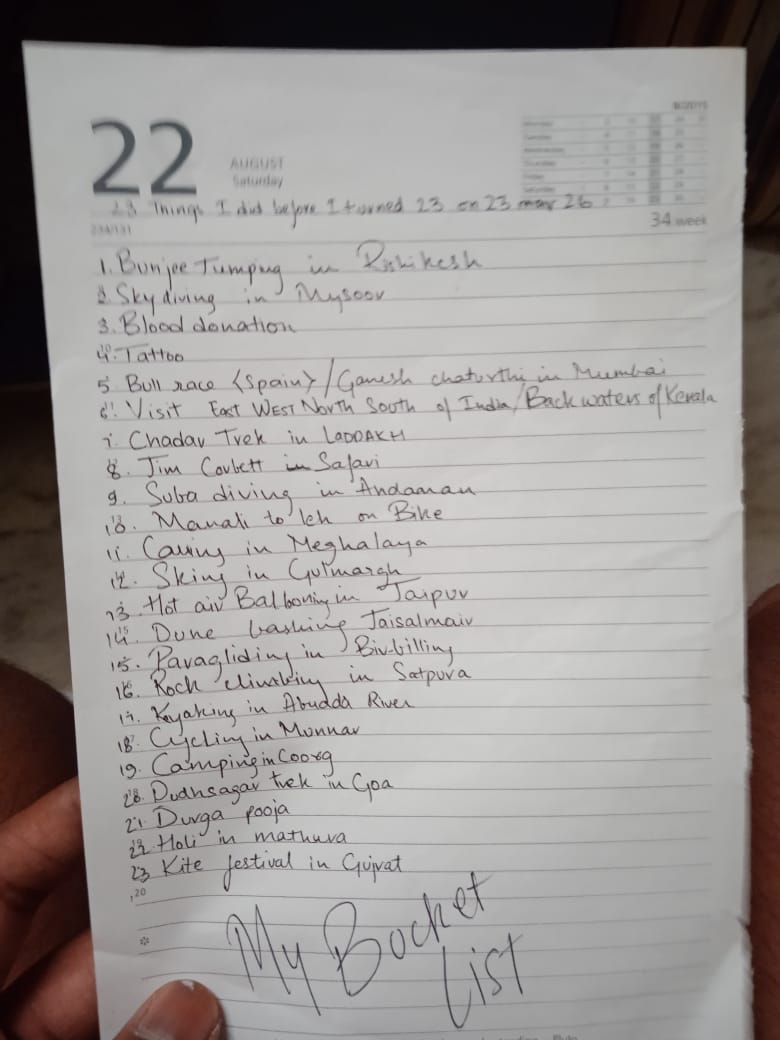 22
AUGUST
Saturday
23 Things I did before I turned 23 on 23 may 26
234/131
34.week
1. Bunjee Jumping in Rishikesh
2. Sky diving in Mysoor
3. Blood donation
4. Tattoo
5. Bull race <Spain>/Ganesh chaturthi in Mumbai
6. Visit EAST WEST NORTH SOUTH of India/Back waters of Kerala
7. Chadar Trek in LADDAKH
8. Jim Corbett in Safari
9. Suba diving in Andaman
10. Manali to leh on Bike
11. Caving in Meghalaya
12. Skiing in Gulmargh
13. Hot air Ballooning in Jaipur
14. Dune bashing Jaisalmair
15. Paragliding in Bir-billing
16. Rock climbing in Satpura
17. Kayaking in River
18. Cycling in Munnar
19. Camping in Coorg
20. Dudhsagar trek in Goa
21. Durga pooja
22. Holi in mathura
23 Kite festival in Gujrat
20
My Bocket
LIST